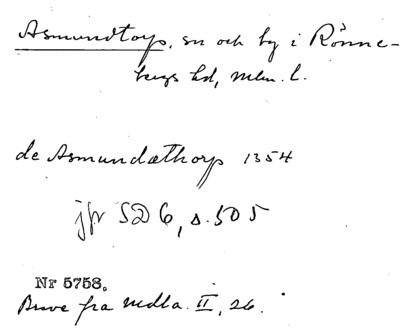 Asmundtorp, sn och by i Rönne-
bergs hd, Mlm. l.
de Asmundæthorp 1354
jfr SD 6, s. 505
Nr 5758.
Brev fra Mdla. II, 26.